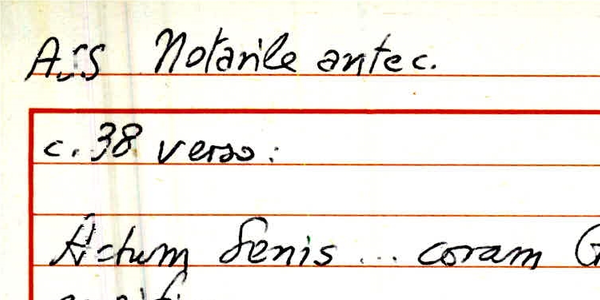 ASS Notarile antec.
c. 38 verso:
Actum Senis ... coram